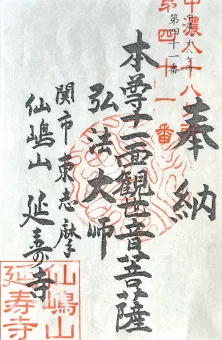 中濃八十八ヶ所
第四十一番
第四十一番
奉納
本尊十一面観世音菩薩
弘法大師
関市東志摩
仙嶋山延寿寺
仙嶋山
延寿寺